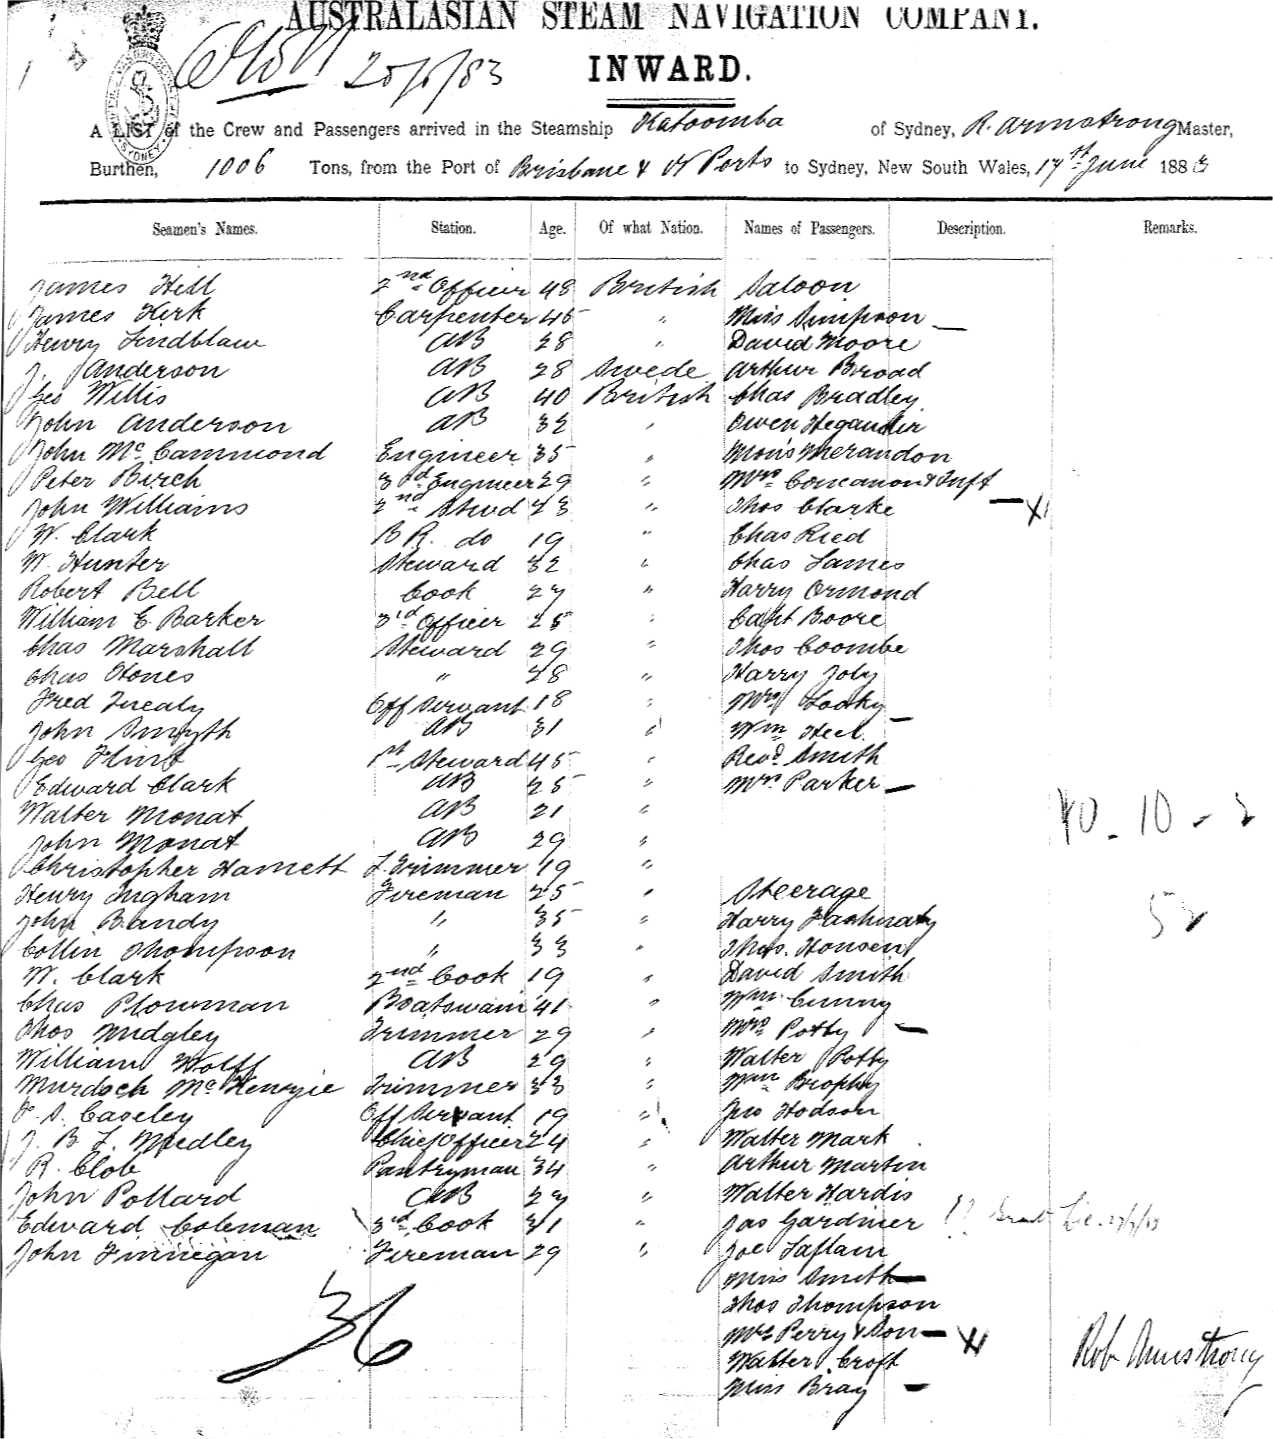 AUSTRALASIAN STEAM NAVIGATION COMPANY.
INWARD.
A LIST of the Crew and Passengers arrived in the Steamship Katoomba of Sydney, R. Armstrong Master,
Burthen, 1006 Tons, from the Port of Brisbane & N Ports to Sydney, New South Wales, 17th June 1883
Seamen's Names. Station. Age. Of what Nation. Names of Passengers. Description. Remarks.
James Hill 2nd Officer 48 British Saloon
James Kirk Carpenter 45 " Miss Simpson —
Henry Lindblaw AB 28 " David Moore
J. Anderson AB 28 Swede Arthur Broad
Geo Willis AB 40 British Chas Bradley
John Anderson AB 32 " Owen
John McCammond Engineer 35 " Mons Merandon
Peter Birch 3rd Engineer 29 " Mrs Concanon & Inft —
John Williams 2nd Stwd 23 " Thos Clarke
W. Clark B R. do 19 " Chas Ried
W. Hunter Steward 32 " Chas James
Robert Bell Cook 27 " Harry Ormond
William C. Barker 3rd Officer 25 " Capt Boore
Chas Marshall Steward 29 " Thos Coombe
Chas Hones " 28 " Harry Joly
Fred Off Servant 18 " Mrs —
John Smyth AB 31 " Wm
Geo Flint 1st Steward 45 " Revd Smith
Edward Clark AB 25 " Mrs Parker —
Walter Monat AB 21 "
John Monat AB 29 "
40 - 10 - 2
Christopher Hamett F. Trimmer 19 "
Henry Ingham Fireman 25 " Steerage
John Bandy " 35 " Harry
52
Collin Thompson " 33 " Thos. Honsen
W. Clark 2nd Cook 19 " David Smith
Chas Plowman Boatswain 41 " Wm Cunny
Thos Midgley Trimmer 29 " Mrs Potty —
William Wolff AB 29 " Walter Potty
Murdoch McKenzie Trimmer 33 " Wm Brophy
F. S. Caseley Off Servant 19 " Jno Hodson
J. B. L. Medley Chief Officer 24 " Walter Mark
R. Clob Pantryman 34 " Arthur Martin
John Pollard AB 27 " Walter Hardis
Edward Coleman 3rd Cook 31 " Jas Gardiner
John Finnegan Fireman 29 " Joe Laflam
Miss Smith —
Thos Thompson
36
Mrs Perry & Son —
Walter Croft
Rob Armstrong
Miss Bray —